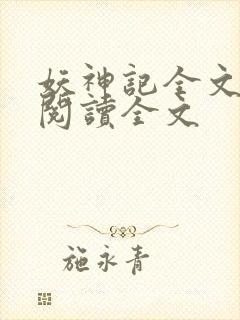 妖神記全文
閱讀全文
施永青